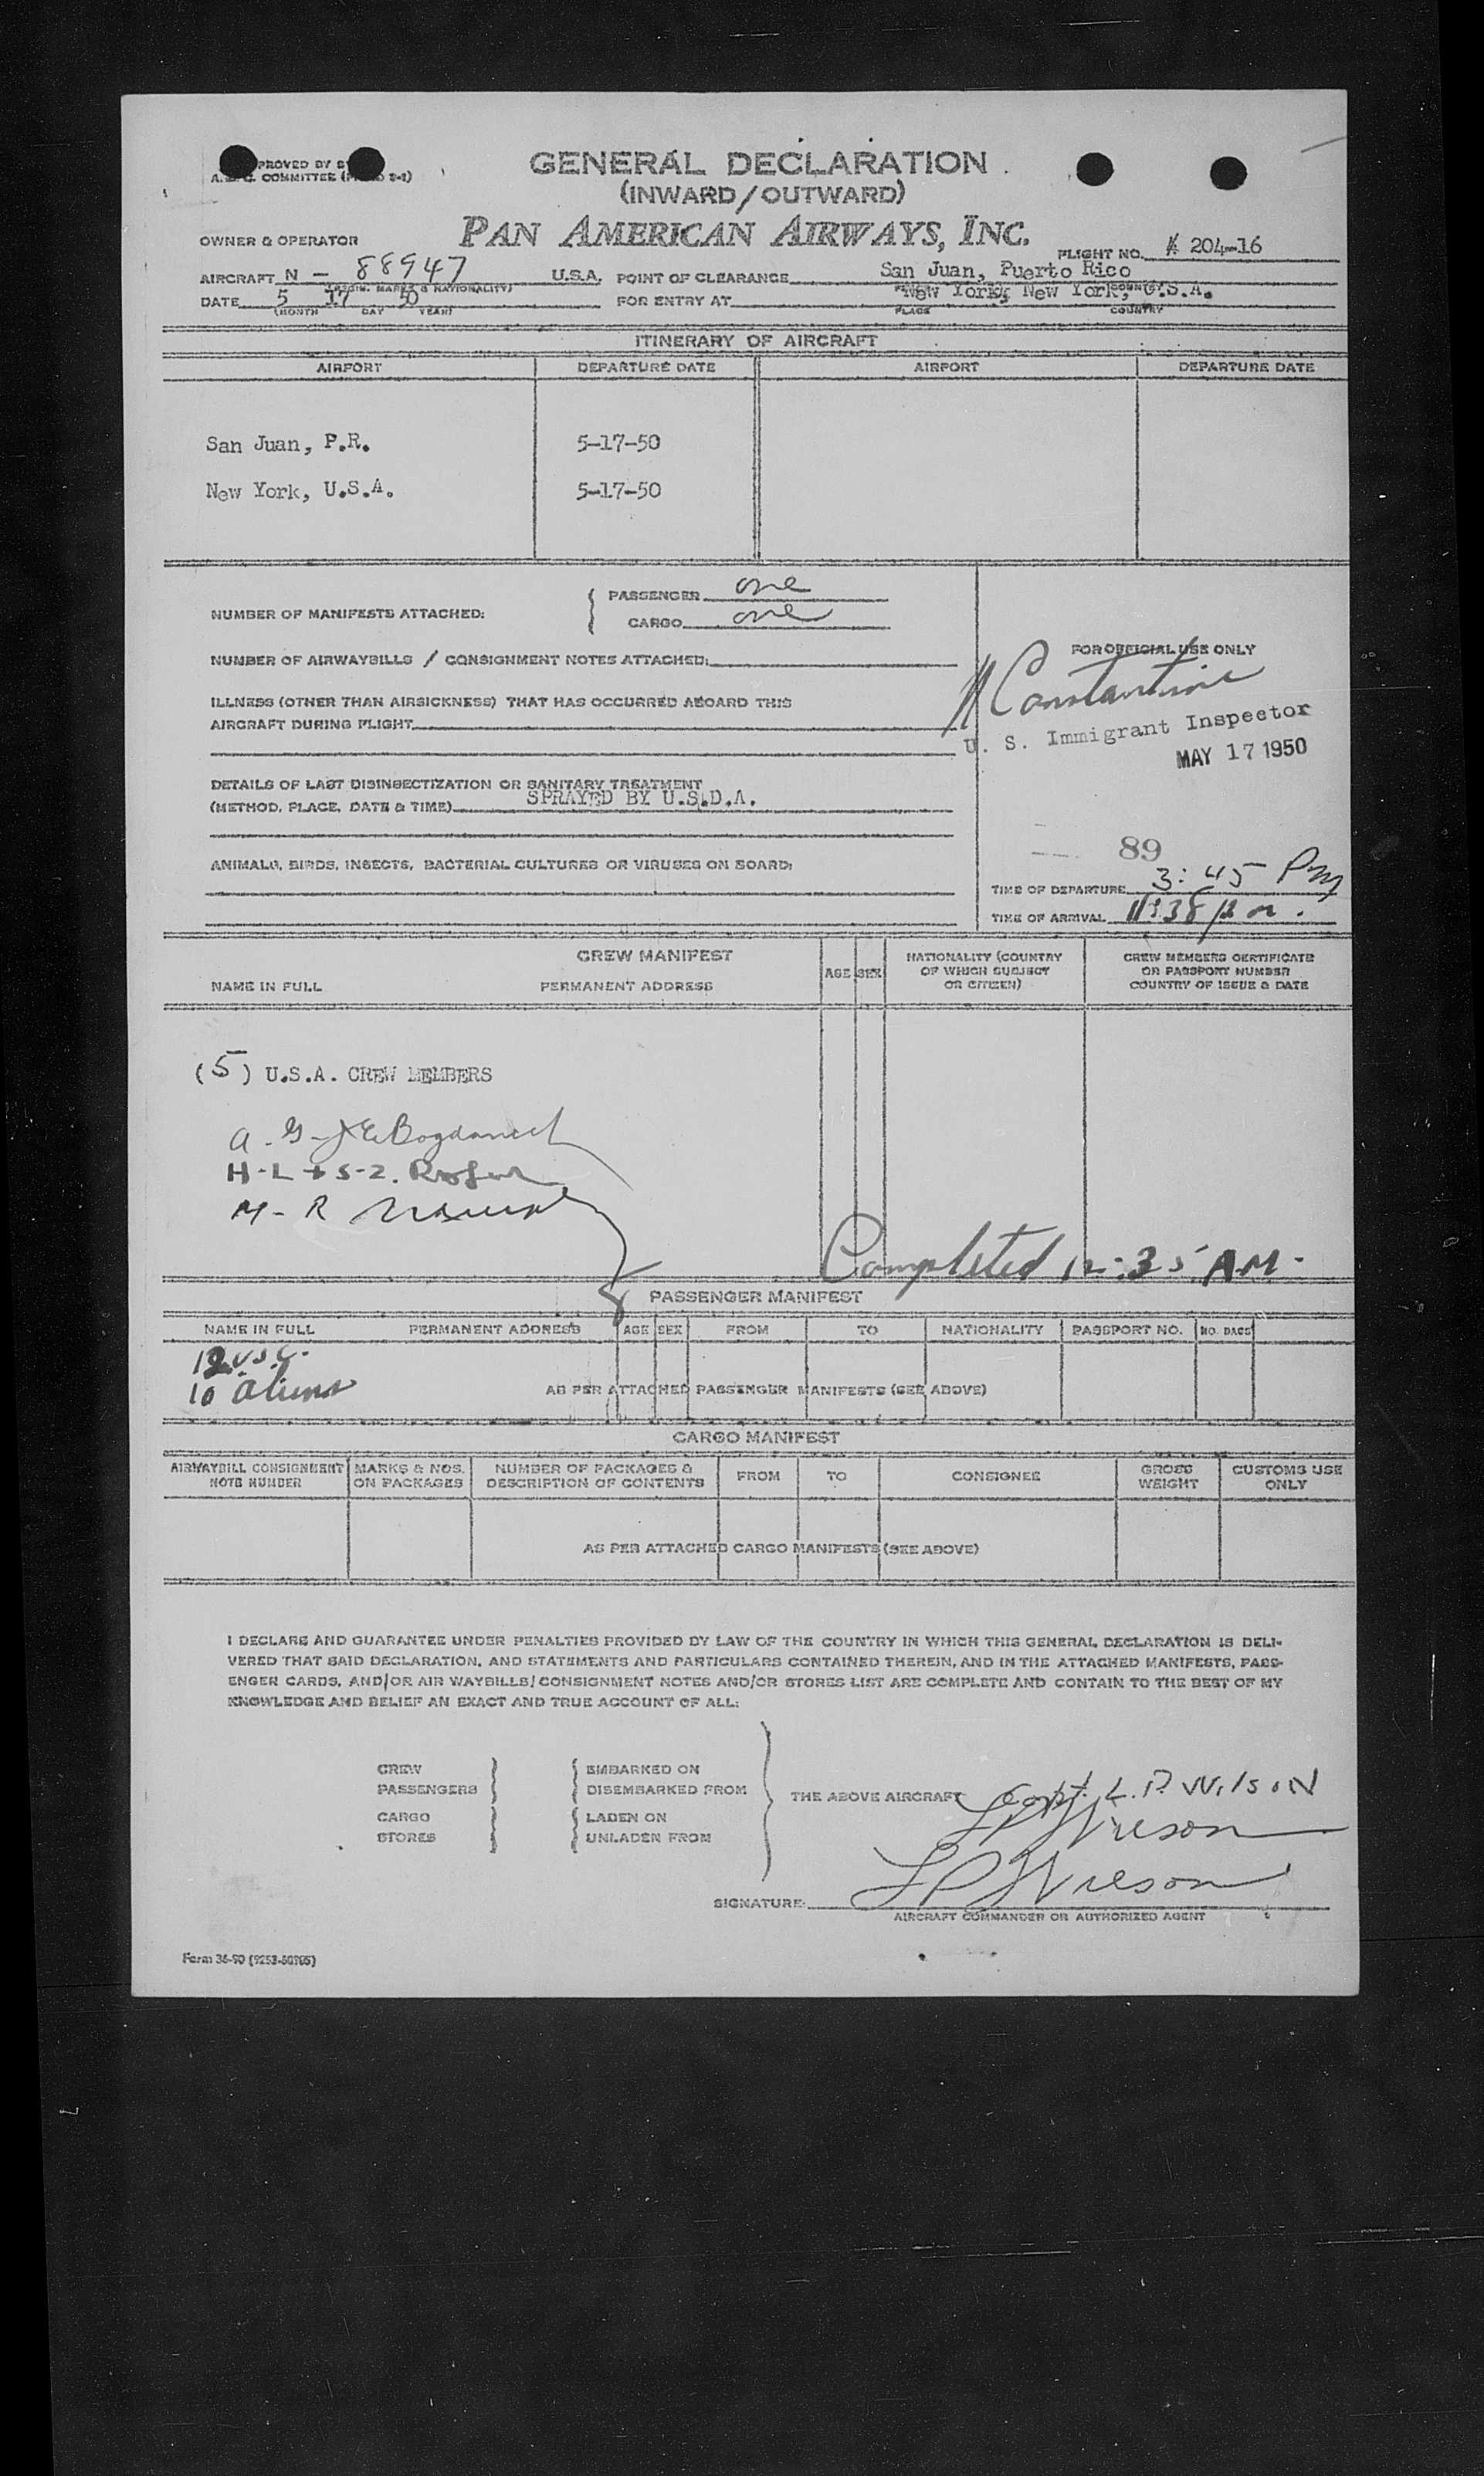 GENERAL DECLARATION
(INWARD/OUTWARD)
PAN AMERICAN AIRWAYS, INC.
PROVED BY
COMMITTEE
OWNER & OPERATOR
FLIGHT NO. 204-16
AIRCRAFT N - 88947 U.S.A. POINT OF CLEARANCE San Juan, Puerto Rico
(REGIN. MARKS & NATIONALITY)
DATE 5 17 50 FOR ENTRY AT New York, New York, U.S.A.
(MONTH DAY YEAR) PLACE COUNTRY
ITINERARY OF AIRCRAFT
AIRPORT DEPARTURE DATE AIRPORT DEPARTURE DATE
San Juan, P.R. 5-17-50
New York, U.S.A. 5-17-50
NUMBER OF MANIFESTS ATTACHED:
PASSENGER one
CARGO one
NUMBER OF AIRWAYBILLS / CONSIGNMENT NOTES ATTACHED:
ILLNESS (OTHER THAN AIRSICKNESS) THAT HAS OCCURRED ABOARD THIS
AIRCRAFT DURING FLIGHT
DETAILS OF LAST DISINSECTIZATION OR SANITARY TREATMENT
(METHOD, PLACE, DATE & TIME) SPRAYED BY U.S.D.A.
ANIMALS, BIRDS, INSECTS, BACTERIAL CULTURES OR VIRUSES ON BOARD:
FOR OFFICIAL USE ONLY
Constantine
U. S. Immigrant Inspector
MAY 17 1950
89
TIME OF DEPARTURE 3:45 PM
TIME OF ARRIVAL 11:38 pm.
CREW MANIFEST
NAME IN FULL PERMANENT ADDRESS AGE SEX
NATIONALITY (COUNTRY
OF WHICH SUBJECT
OR CITIZEN)
CREW MEMBERS CERTIFICATE
OR PASSPORT NUMBER
COUNTRY OF ISSUE & DATE
(5) U.S.A. CREW MEMBERS
H-L + S-2.
M- R
Completed 12:35 A.M.
PASSENGER MANIFEST
NAME IN FULL PERMANENT ADDRESS AGE SEX FROM TO NATIONALITY PASSPORT NO. NO. BAGS
12 USC.
10 Aliens
AS PER ATTACHED PASSENGER MANIFESTS (SEE ABOVE)
CARGO MANIFEST
AIRWAYBILL CONSIGNMENT
NOTE NUMBER
MARKS & NOS.
ON PACKAGES
NUMBER OF PACKAGES &
DESCRIPTION OF CONTENTS
FROM TO CONSIGNEE
GROSS
WEIGHT
CUSTOMS USE
ONLY
AS PER ATTACHED CARGO MANIFESTS (SEE ABOVE)
I DECLARE AND GUARANTEE UNDER PENALTIES PROVIDED BY LAW OF THE COUNTRY IN WHICH THIS GENERAL DECLARATION IS DELI-
VERED THAT SAID DECLARATION, AND STATEMENTS AND PARTICULARS CONTAINED THEREIN, AND IN THE ATTACHED MANIFESTS, PASS-
ENGER CARDS, AND/OR AIR WAYBILLS/ CONSIGNMENT NOTES AND/OR STORES LIST ARE COMPLETE AND CONTAIN TO THE BEST OF MY
KNOWLEDGE AND BELIEF AN EXACT AND TRUE ACCOUNT OF ALL:
CREW EMBARKED ON
PASSENGERS DISEMBARKED FROM
CARGO LADEN ON
STORES UNLADEN FROM
THE ABOVE AIRCRAFT Capt. L.P. WILSON
LP Wilson
SIGNATURE: LP Wilson
AIRCRAFT COMMANDER OR AUTHORIZED AGENT
Form 36-90